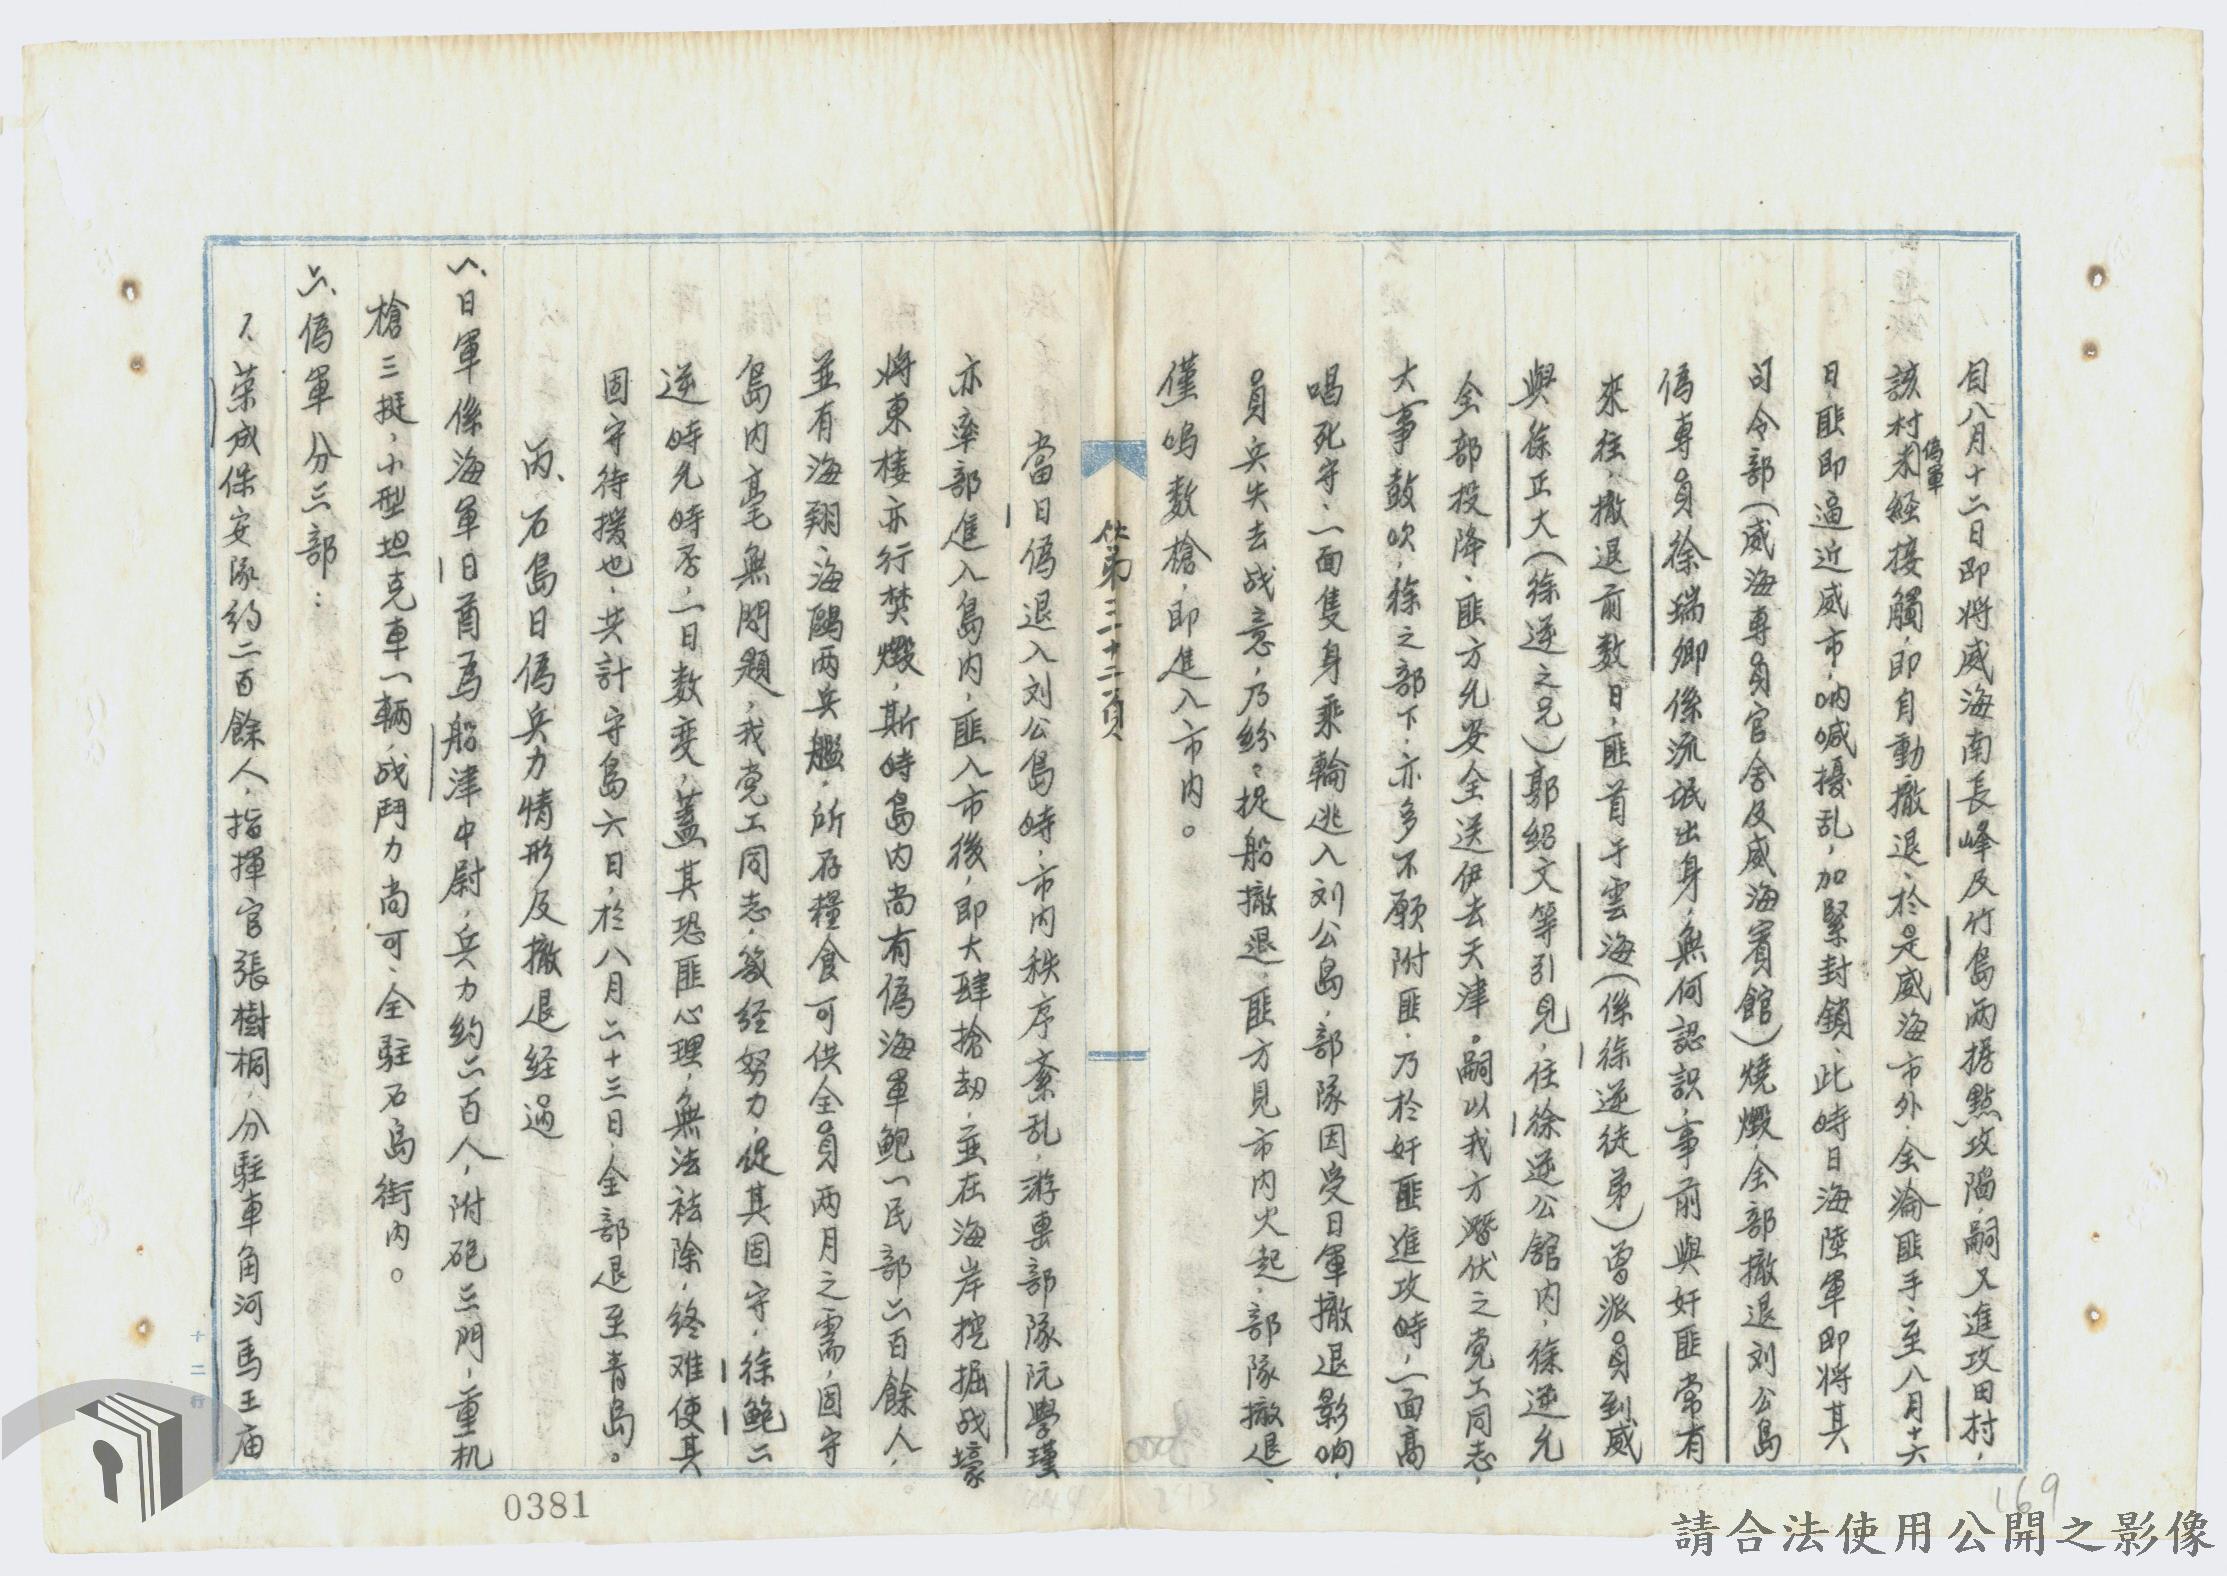 自八月十二日即将威海南長峰及竹島两據點攻陷，嗣又進攻田村，
該村偽軍未經接觸，即自動撤退、於是威海市外，全淪匪手、至八月十六
日，匪即逼近威市，吶喊擾乱，加緊封鎖、此時日海陸軍即将其
司令部（威海專員官舍及威海賓館）燒燬，全部撤退刘公島
偽專員徐瑞卿係流氓出身，無何認識，事前與奸匪常有
來往，撤退前数日，匪首于雲海（係徐逆徒弟）曾派員到威
與徐正大（徐逆之兄）郭紹文等引見，住徐逆公館內，徐逆允
全部投降、匪方允安全送伊去天津。嗣以我方潛伏之党工同志，
大事鼓吹，徐之部下，亦多不願附匪，乃於奸匪進攻時，一面高
唱死守、一面隻身乘輪逃入刘公島，部隊因受日軍撤退影响，
員兵失去战意，乃紛紛捉船撤退、匪方見市内火起，部隊撤退、
僅鳴数槍，即進入市内。
第三十二頁
當日偽退入刘公島時，市内秩序紊乱，游專部隊阮學瑾
亦率部進入島内，匪入市後，即大肆搶劫，並在海岸挖掘战壕
将東楼亦行焚燬，斯時島内尚有偽海軍鮑一民部六百餘人，
並有海翔、海鷗两兵艦，所存糧食可供全員两月之需，固守
島内毫無問題，我党工同志，幾经努力，促其固守，徐鮑二
逆時允時否，一日数变，蓋其恐匪心理，無法祛除，終难使其
固守待援也，共計守島六日，於八月二十三日，全部退至青島。
丙、石島日偽兵力情形及撤退经過
一、日軍係海軍日酋為船津中尉，兵力約六百人，附砲三門，重机
槍三挺，小型坦克車一輛，战鬥力尚可，全駐石島街内。
二、偽軍分三部：
1、荣成保安隊約二百餘人，指揮官張樹桐，分駐車角河馬王庙
十二行
0381
169
請合法使用公開之影像